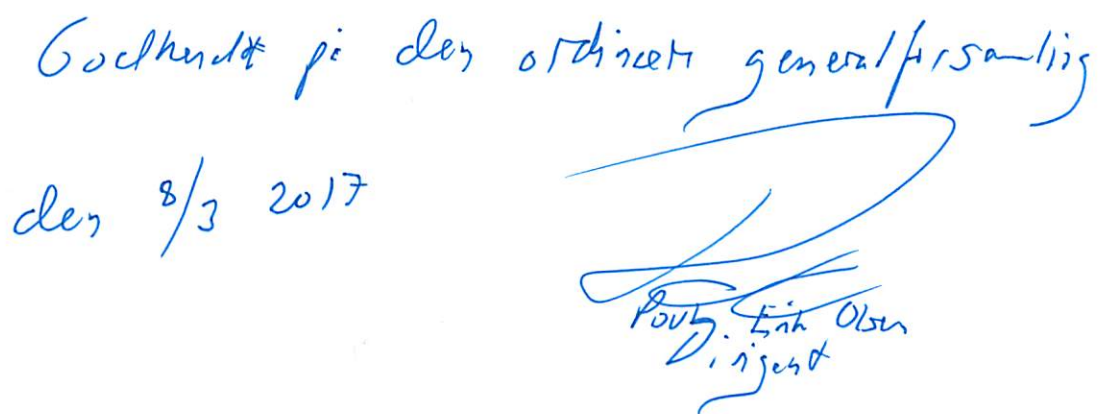 Godkendt på den ordinære generalforsamling
den 8/3 2017
Poul Erik Olsen
Dirigent